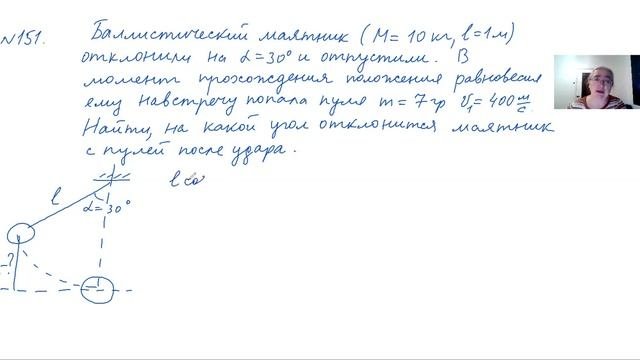 N151. Баллистический маятник (M = 10 кг, l = 1 м)
отклонили на α = 30° и отпустили. В
момент прохождения положения равновесия
ему навстречу попала пуля m = 7 гр υ₁ = 400 м/с
Найти, на какой угол отклонится маятник
с пулей после удара.
l
l co
α = 30°
-?